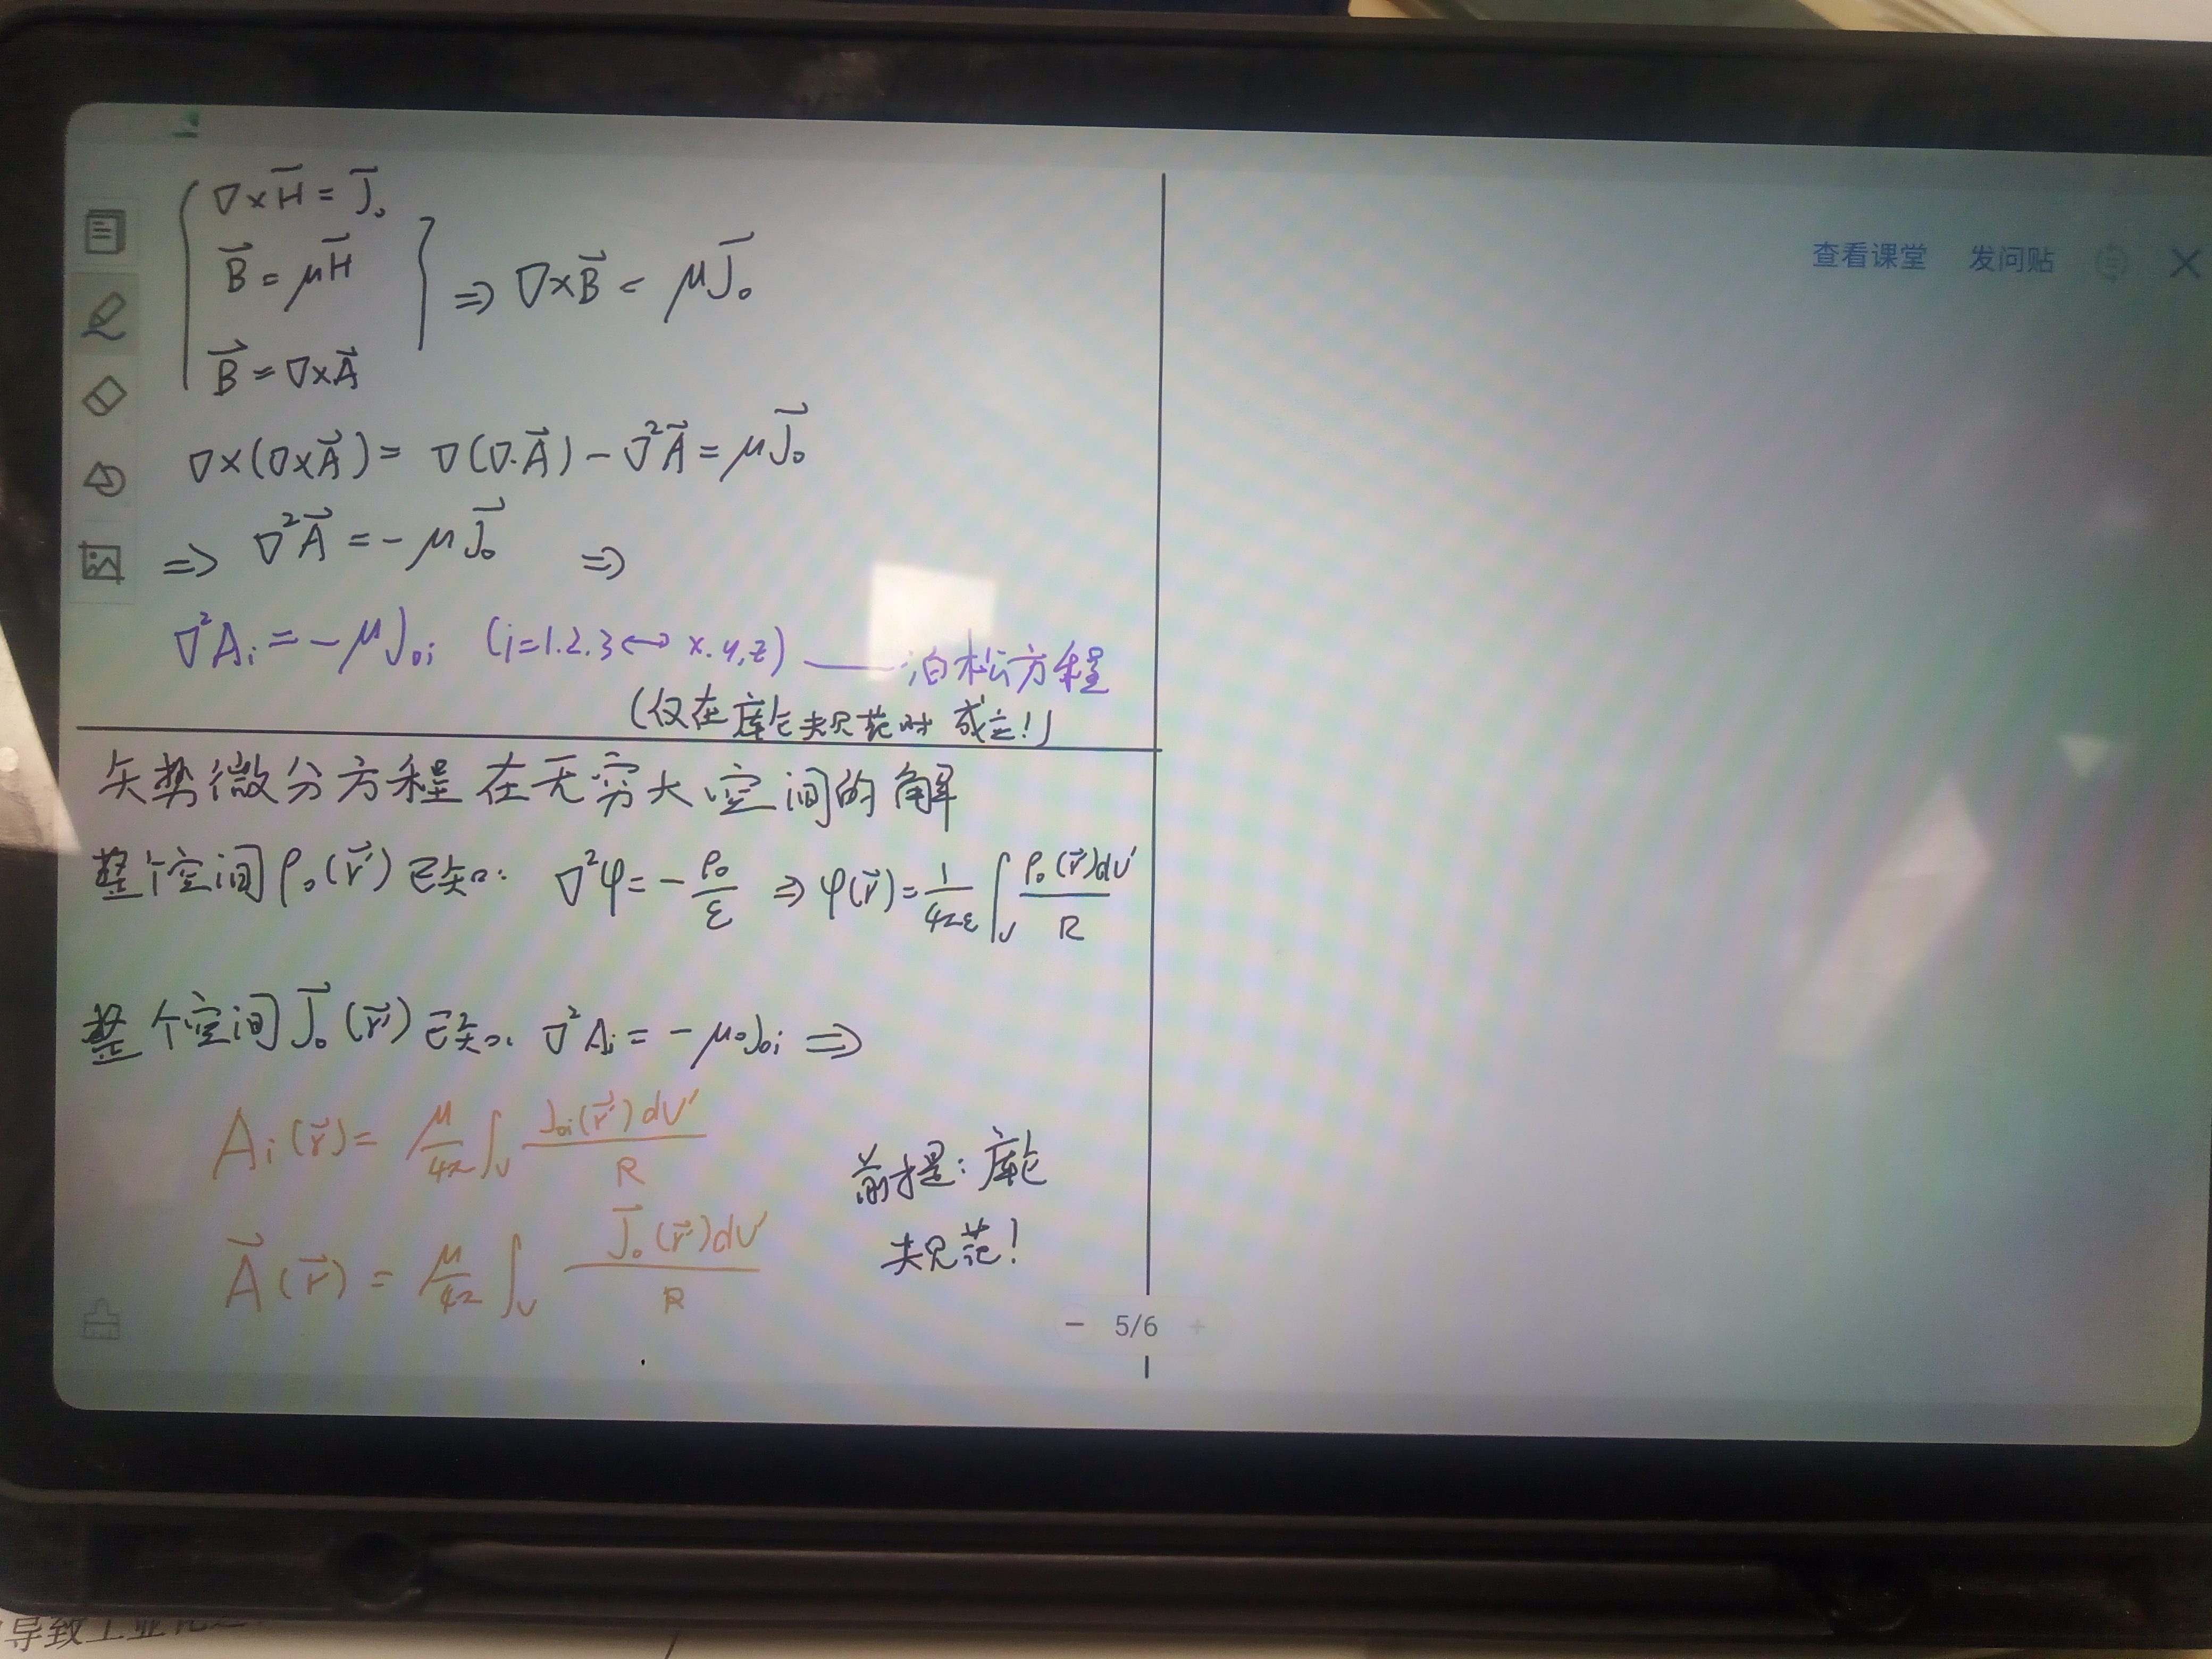 ∇×H⃗ = J⃗₀
B⃗ = μH⃗
B⃗ = ∇×A⃗
⇒ ∇×B⃗ = μJ⃗₀
∇×(∇×A⃗) = ∇(∇·A⃗) − ∇²A⃗ = μJ⃗₀
⇒ ∇²A⃗ = − μJ⃗₀ ⇒
∇²Aᵢ = − μJ₀ᵢ (i=1.2.3 ↔ x.y,z) —— 泊松方程
(仅在库仑规范时 成立!)
矢势微分方程在无穷大空间的解
整个空间ρ₀(r⃗') 已知: ∇²φ = − ρ₀/ε ⇒ φ(r⃗) = 1/4πε ∫_V ρ₀(r⃗')dV'/R
整个空间J⃗₀(r⃗') 已知: ∇²Aᵢ = − μ₀J₀ᵢ ⇒
Aᵢ(r⃗) = μ/4π ∫_V J₀ᵢ(r⃗')dV'/R
A⃗(r⃗) = μ/4π ∫_V J⃗₀(r⃗')dV'/R
前提: 库仑
规范!
查看课堂 发问贴
− 5/6 +
导致工业化